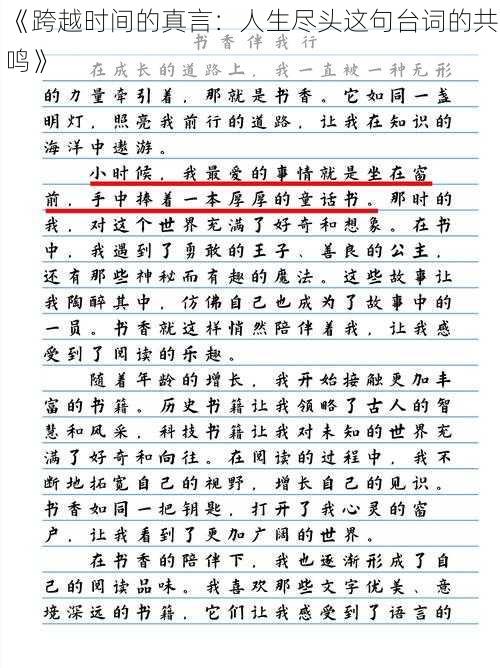 《跨越时间的真言：人生尽头这句台词的共
鸣》
书香伴我行
在成长的道路上，我一直被一种无形
的力量牵引着，那就是书香。它如同一盏
明灯，照亮我前行的道路，让我在知识的
海洋中遨游。
小时候，我最爱的事情就是坐在窗
前，手中捧着一本厚厚的童话书。那时的
我，对这个世界充满了好奇和想象。在书
中，我遇到了勇敢的王子、善良的公主，
还有那些神秘而有趣的魔法。这些故事让
我陶醉其中，仿佛自己也成为了故事中的
一员。书香就这样悄然陪伴着我，让我感
受到了阅读的乐趣。
随着年龄的增长，我开始接触更加丰
富的书籍。历史书籍让我领略了古人的智
慧和风采，科技书籍让我对未知的世界充
满了好奇和向往。在阅读的过程中，我不
断地拓宽自己的视野，增长自己的见识。
书香如同一把钥匙，打开了我心灵的窗
户，让我看到了更加广阔的世界。
在书香的陪伴下，我也逐渐形成了自
己的阅读品味。我喜欢那些文字优美、意
境深远的书籍，它们让我感受到了语言的